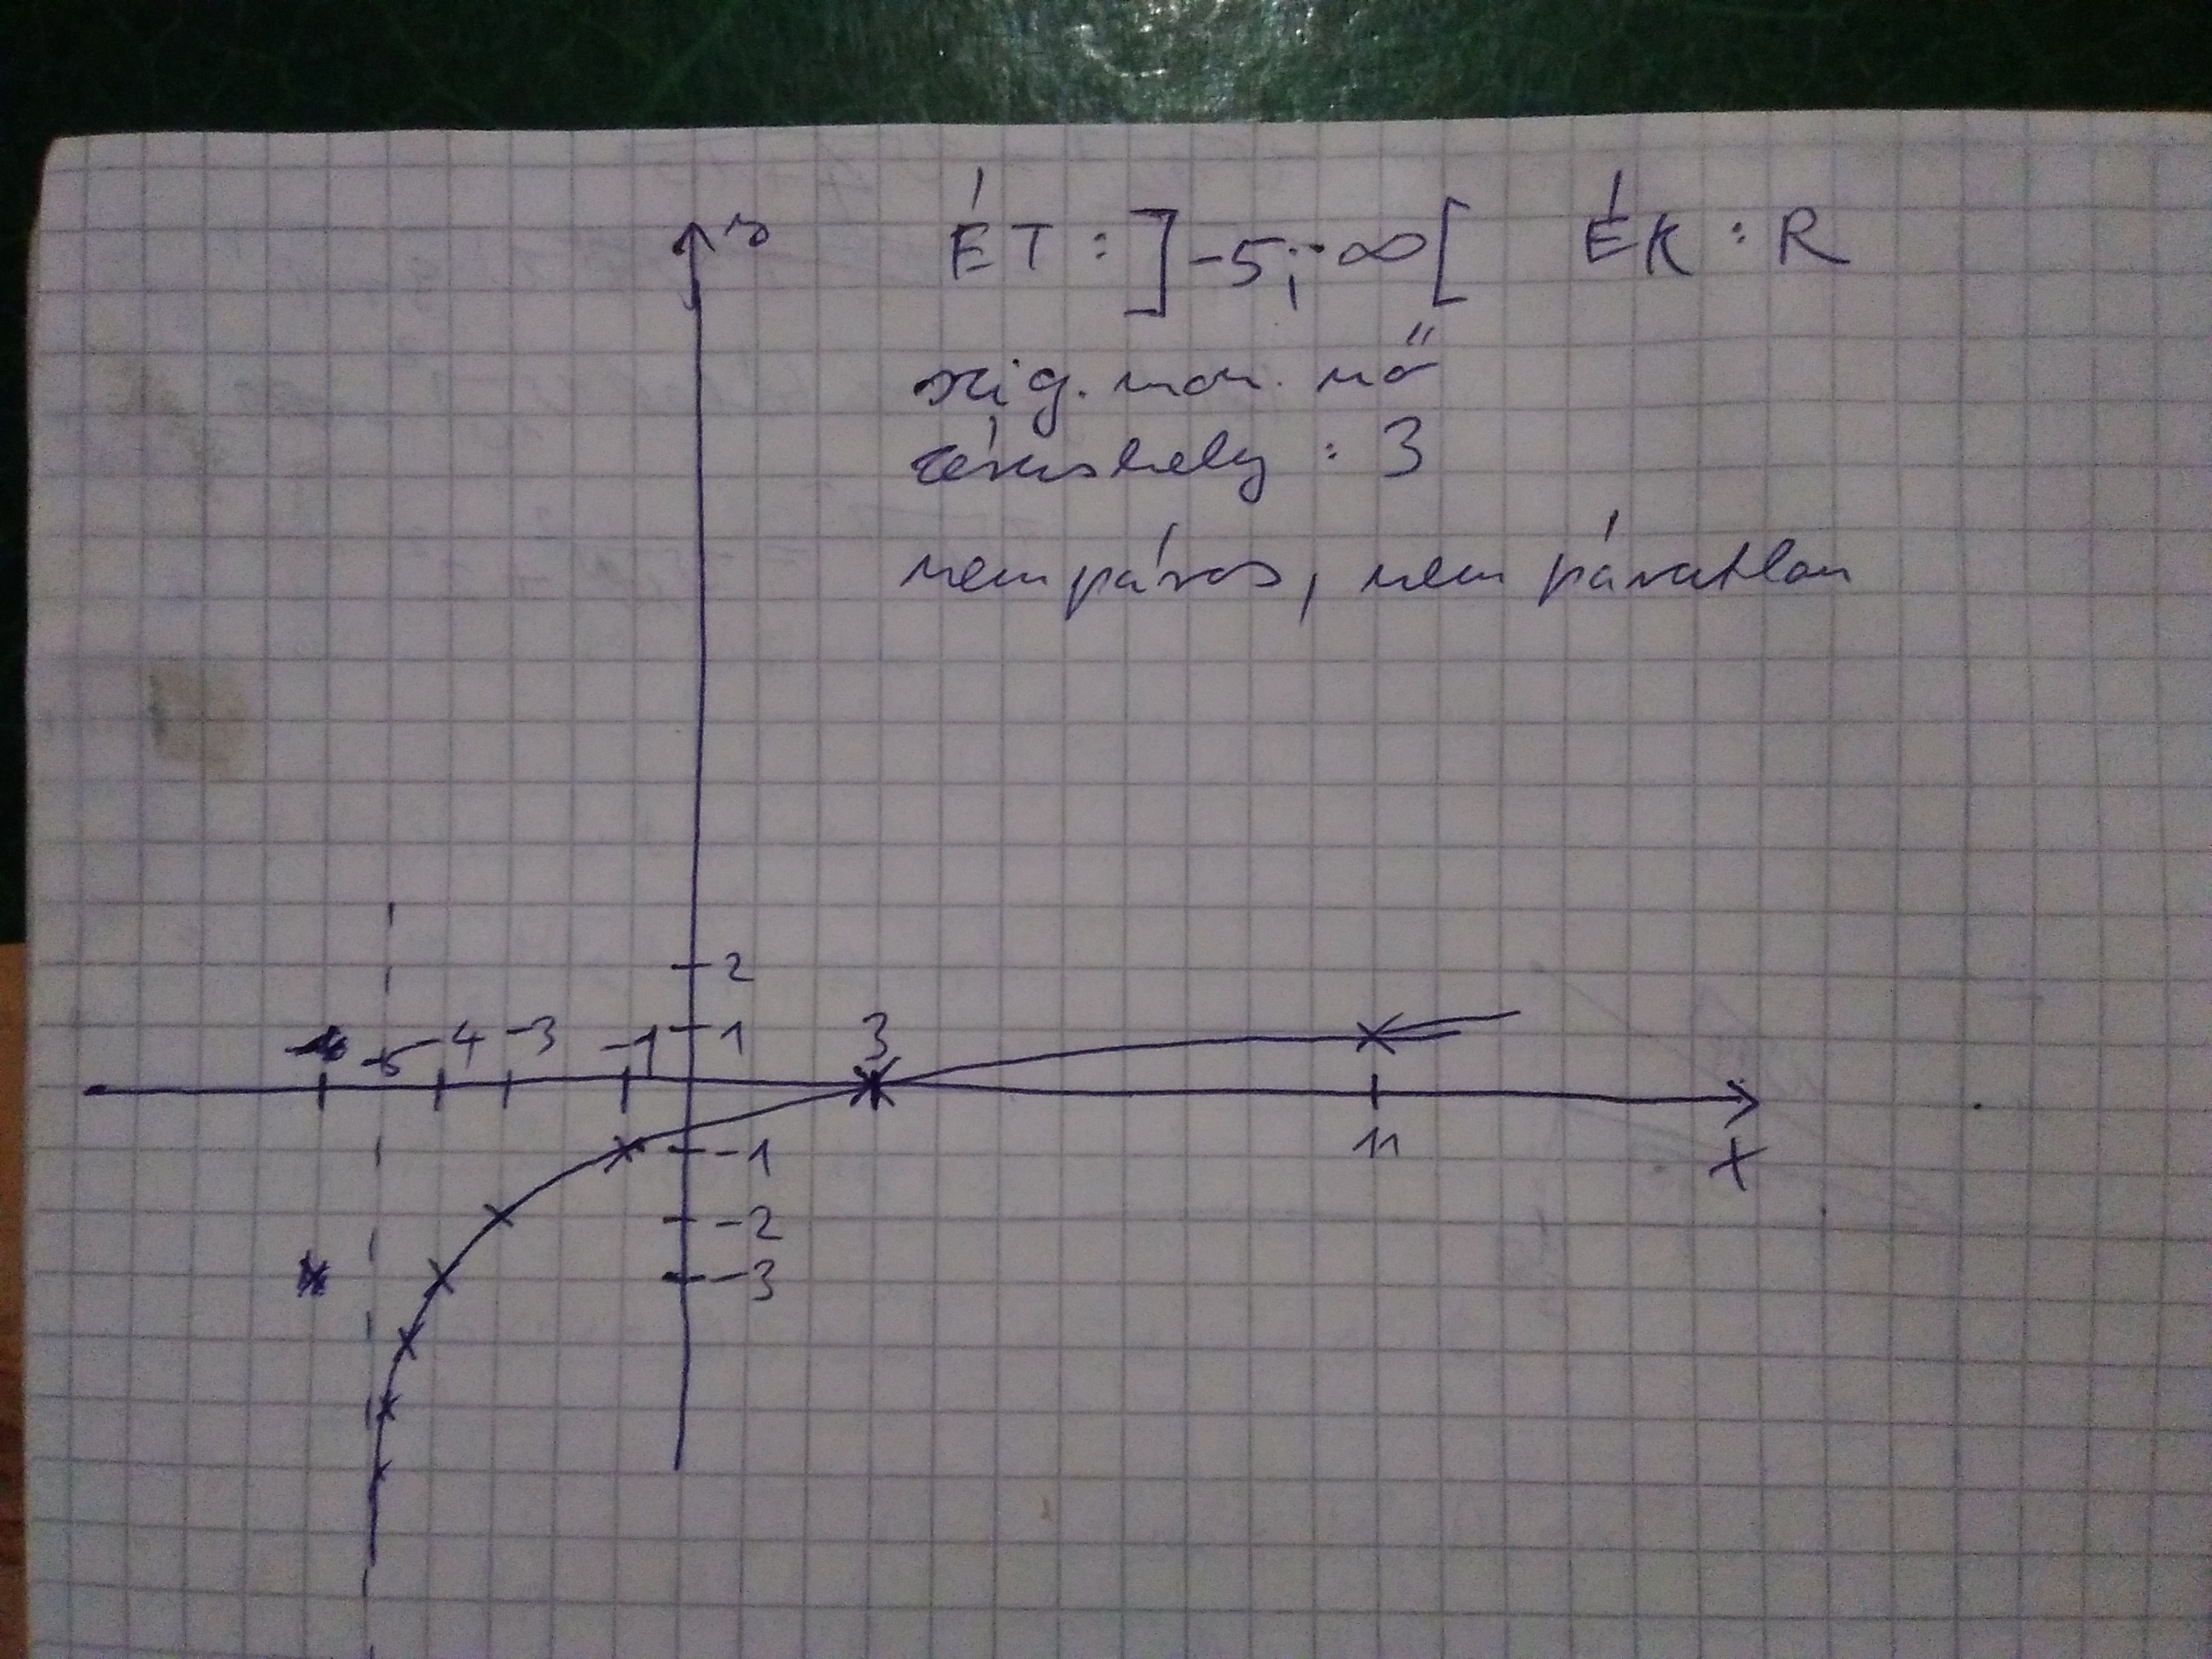 y
ÉT : ]-5; ∞[ ÉK : R
szig. mon. nő
zérushely : 3
nem páros, nem páratlan
2
-5 -4 -3 -1 1 3
11
-1
x
-2
-3